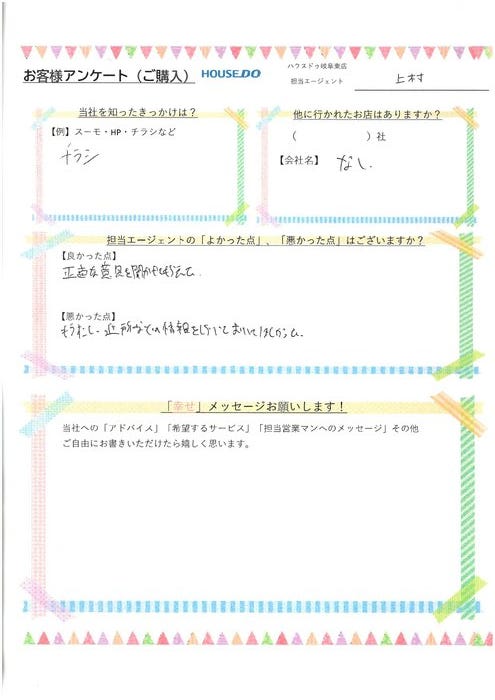 ハウスドゥ岐阜東店
お客様アンケート（ご購入） HOUSE DO 担当エージェント 上村
当社を知ったきっかけは？
【例】スーモ・HP・チラシなど
チラシ
他に行かれたお店はありますか？
（ ）社
【会社名】 なし.
担当エージェントの「よかった点」、「悪かった点」はございますか？
【良かった点】
正直な意見を聞かせてもらえた.
【悪かった点】
もう少し、近所などの情報を
「幸せ」メッセージお願いします！
当社への「アドバイス」「希望するサービス」「担当営業マンへのメッセージ」その他
ご自由にお書きいただけたら嬉しく思います。